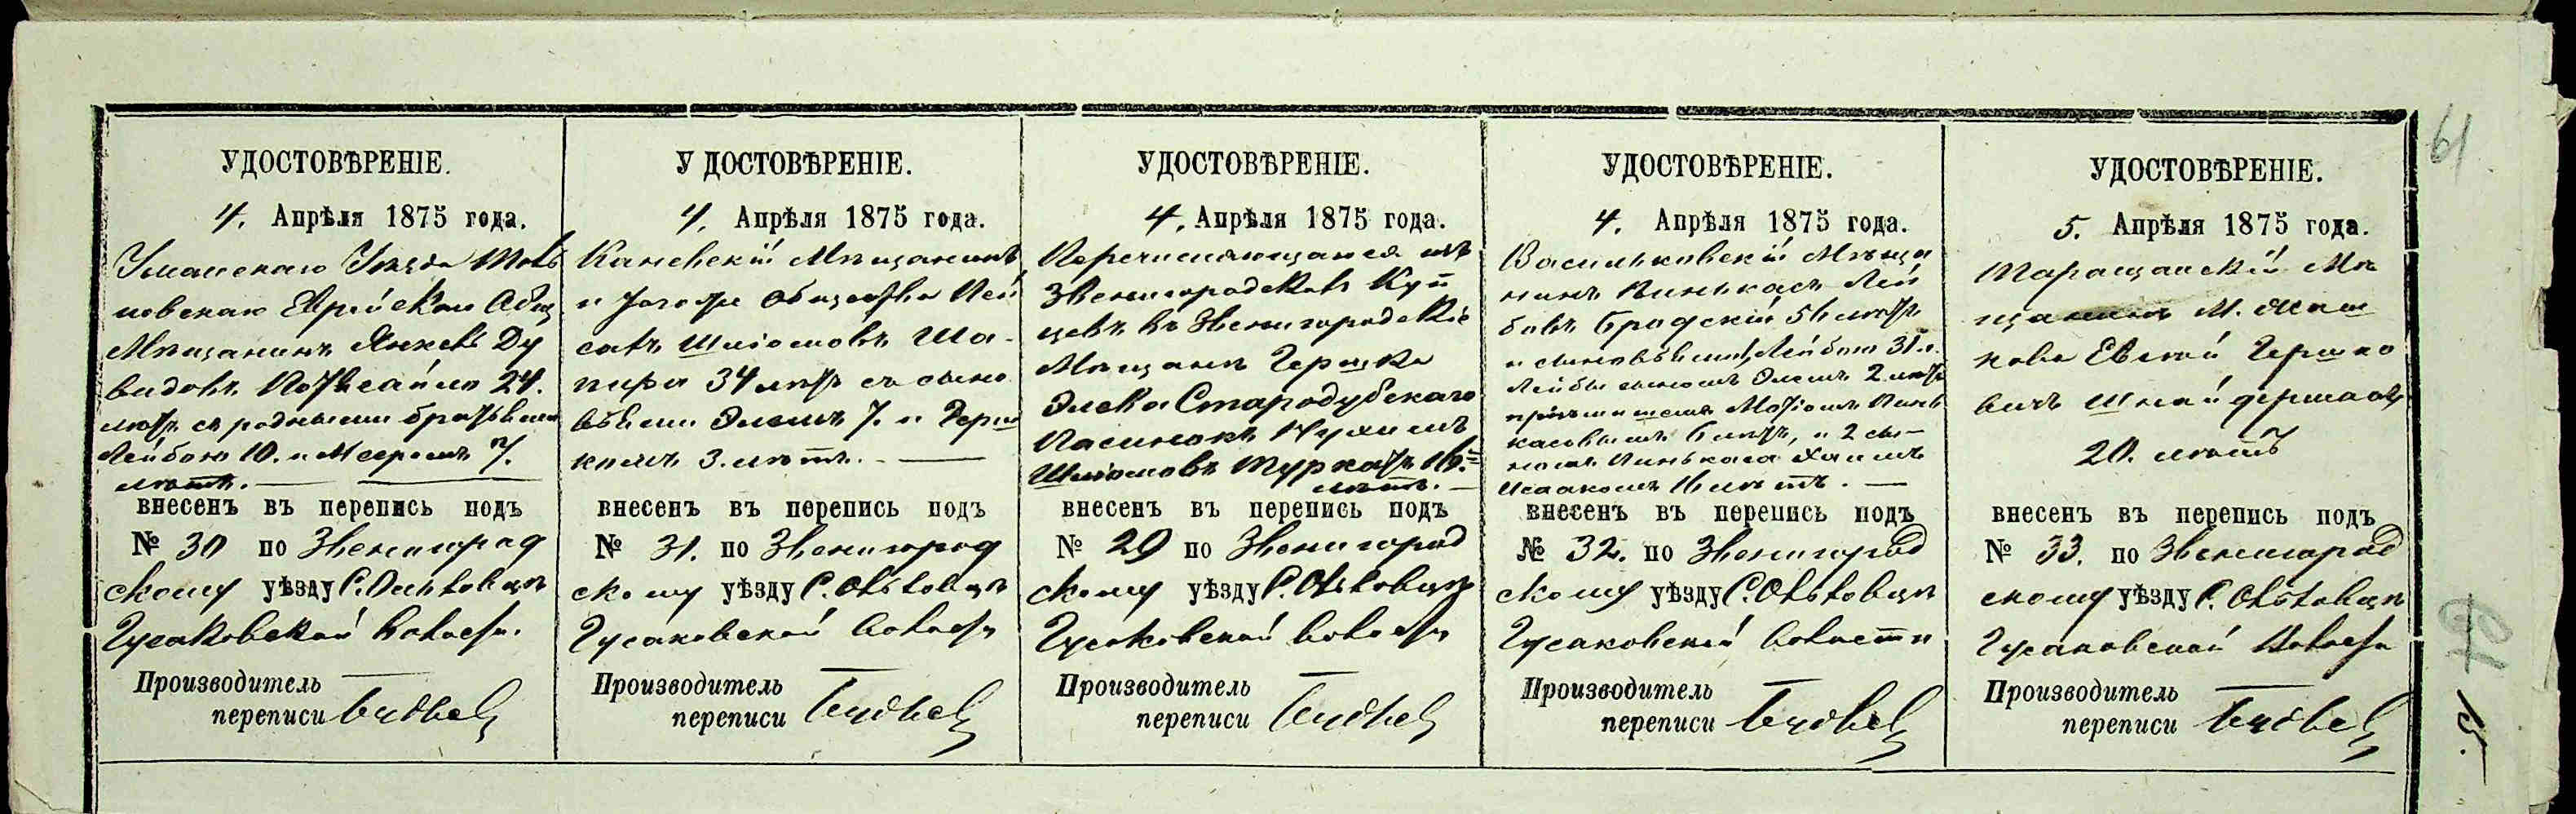 61
УДОСТОВѢРЕНІЕ.
4. Апрѣля 1875 года.
Уманскаго Уѣзда
Мѣщанинъ Янкель Ду
видовъ 24.
лѣтъ съ родными братьями
Лейбою 10. и Мееромъ 7.
лѣтъ.
внесенъ въ перепись подъ
№ 30 по Звенигород
скому уѣзду С.
Гусаковской Волости.
Производитель
переписи
УДОСТОВѢРЕНІЕ.
4. Апрѣля 1875 года.
Каневскій Мѣщанинъ
и того же общества Лей
Шліомовъ Ша-
пиро 34 лѣтъ съ сыно
вьями Элемъ 7. и Герш
комъ 3. лѣтъ.
внесенъ въ перепись подъ
№ 31. по Звенигород
скому уѣзду С. Ольховцѣ
Гусаковской Волости
Производитель
переписи
УДОСТОВѢРЕНІЕ.
4. Апрѣля 1875 года.
Перечисляющаяся изъ
Звенигородскихъ Куп
цевъ въ Звенигородскіе
Мѣщане Гершка
Элева Стародубскаго
Пасинокъ Нухимъ
Шліомовъ 16.
лѣтъ.
внесенъ въ перепись подъ
№ 29 по Звенигород
скому уѣзду С. Ольховцѣ
Гусаковской Волости
Производитель
переписи
УДОСТОВѢРЕНІЕ.
4. Апрѣля 1875 года.
Васильковскій Мѣща
нинъ Пинькасъ Лей
бовъ Бродскій 56 лѣтъ
и сыновьями, Лейбою 31 л.
Лейбы сыномъ Элемъ 2 лѣтъ
Пинь
касовымъ 6 лѣтъ, и 2 сы-
номъ Пинькаса Хаимъ
Исаакомъ 16 лѣтъ.
внесенъ въ перепись подъ
№ 32. по Звенигород
скому уѣзду С. Ольховцѣ
Гусаковской Волости
Производитель
переписи
УДОСТОВѢРЕНІЕ.
5. Апрѣля 1875 года.
Таращанскій Мѣ
щанинъ М.
Гершко
вичъ
20. лѣтъ
внесенъ въ перепись подъ
№ 33. по Звенигород
скому уѣзду С. Ольховцѣ
Гусаковской Волости
Производитель
переписи
15.